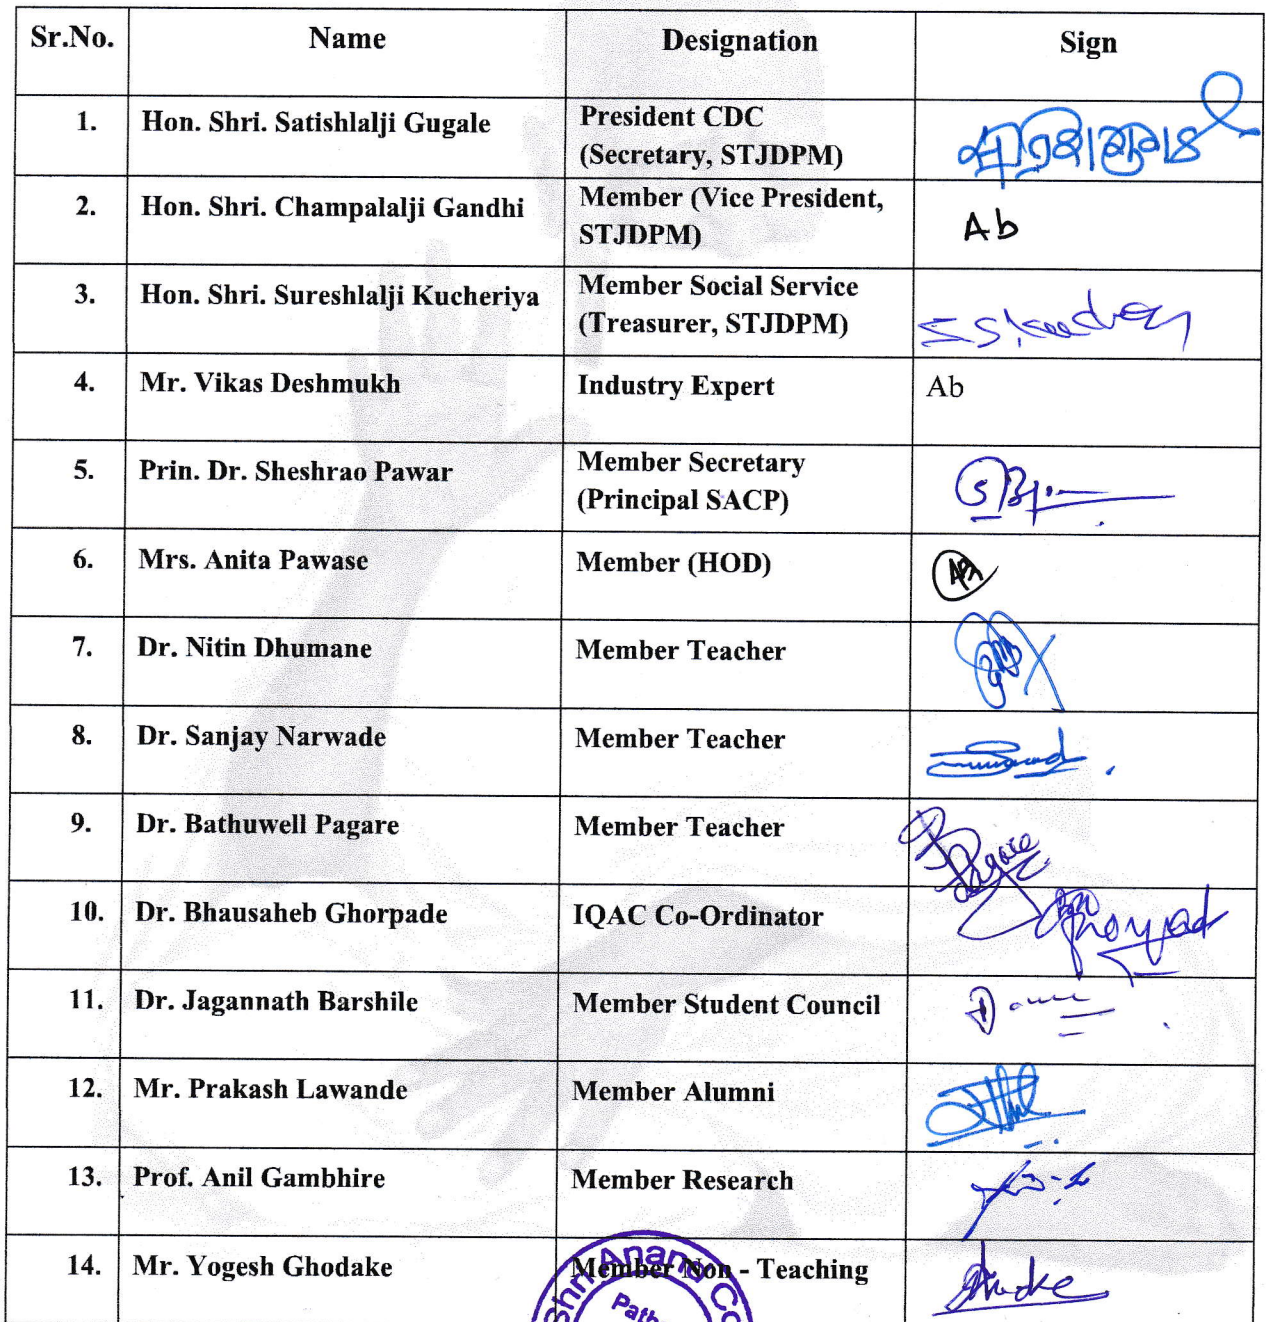 Sr.No. Name Designation Sign
1. Hon. Shri. Satishlalji Gugale President CDC
(Secretary, STJDPM)
2. Hon. Shri. Champalalji Gandhi Member (Vice President,
STJDPM) Ab
3. Hon. Shri. Sureshlalji Kucheriya Member Social Service
(Treasurer, STJDPM)
4. Mr. Vikas Deshmukh Industry Expert Ab
5. Prin. Dr. Sheshrao Pawar Member Secretary
(Principal SACP)
6. Mrs. Anita Pawase Member (HOD)
7. Dr. Nitin Dhumane Member Teacher
8. Dr. Sanjay Narwade Member Teacher
9. Dr. Bathuwell Pagare Member Teacher
10. Dr. Bhausaheb Ghorpade IQAC Co-Ordinator
11. Dr. Jagannath Barshile Member Student Council
12. Mr. Prakash Lawande Member Alumni
13. Prof. Anil Gambhire Member Research
14. Mr. Yogesh Ghodake Member Non - Teaching
Anand